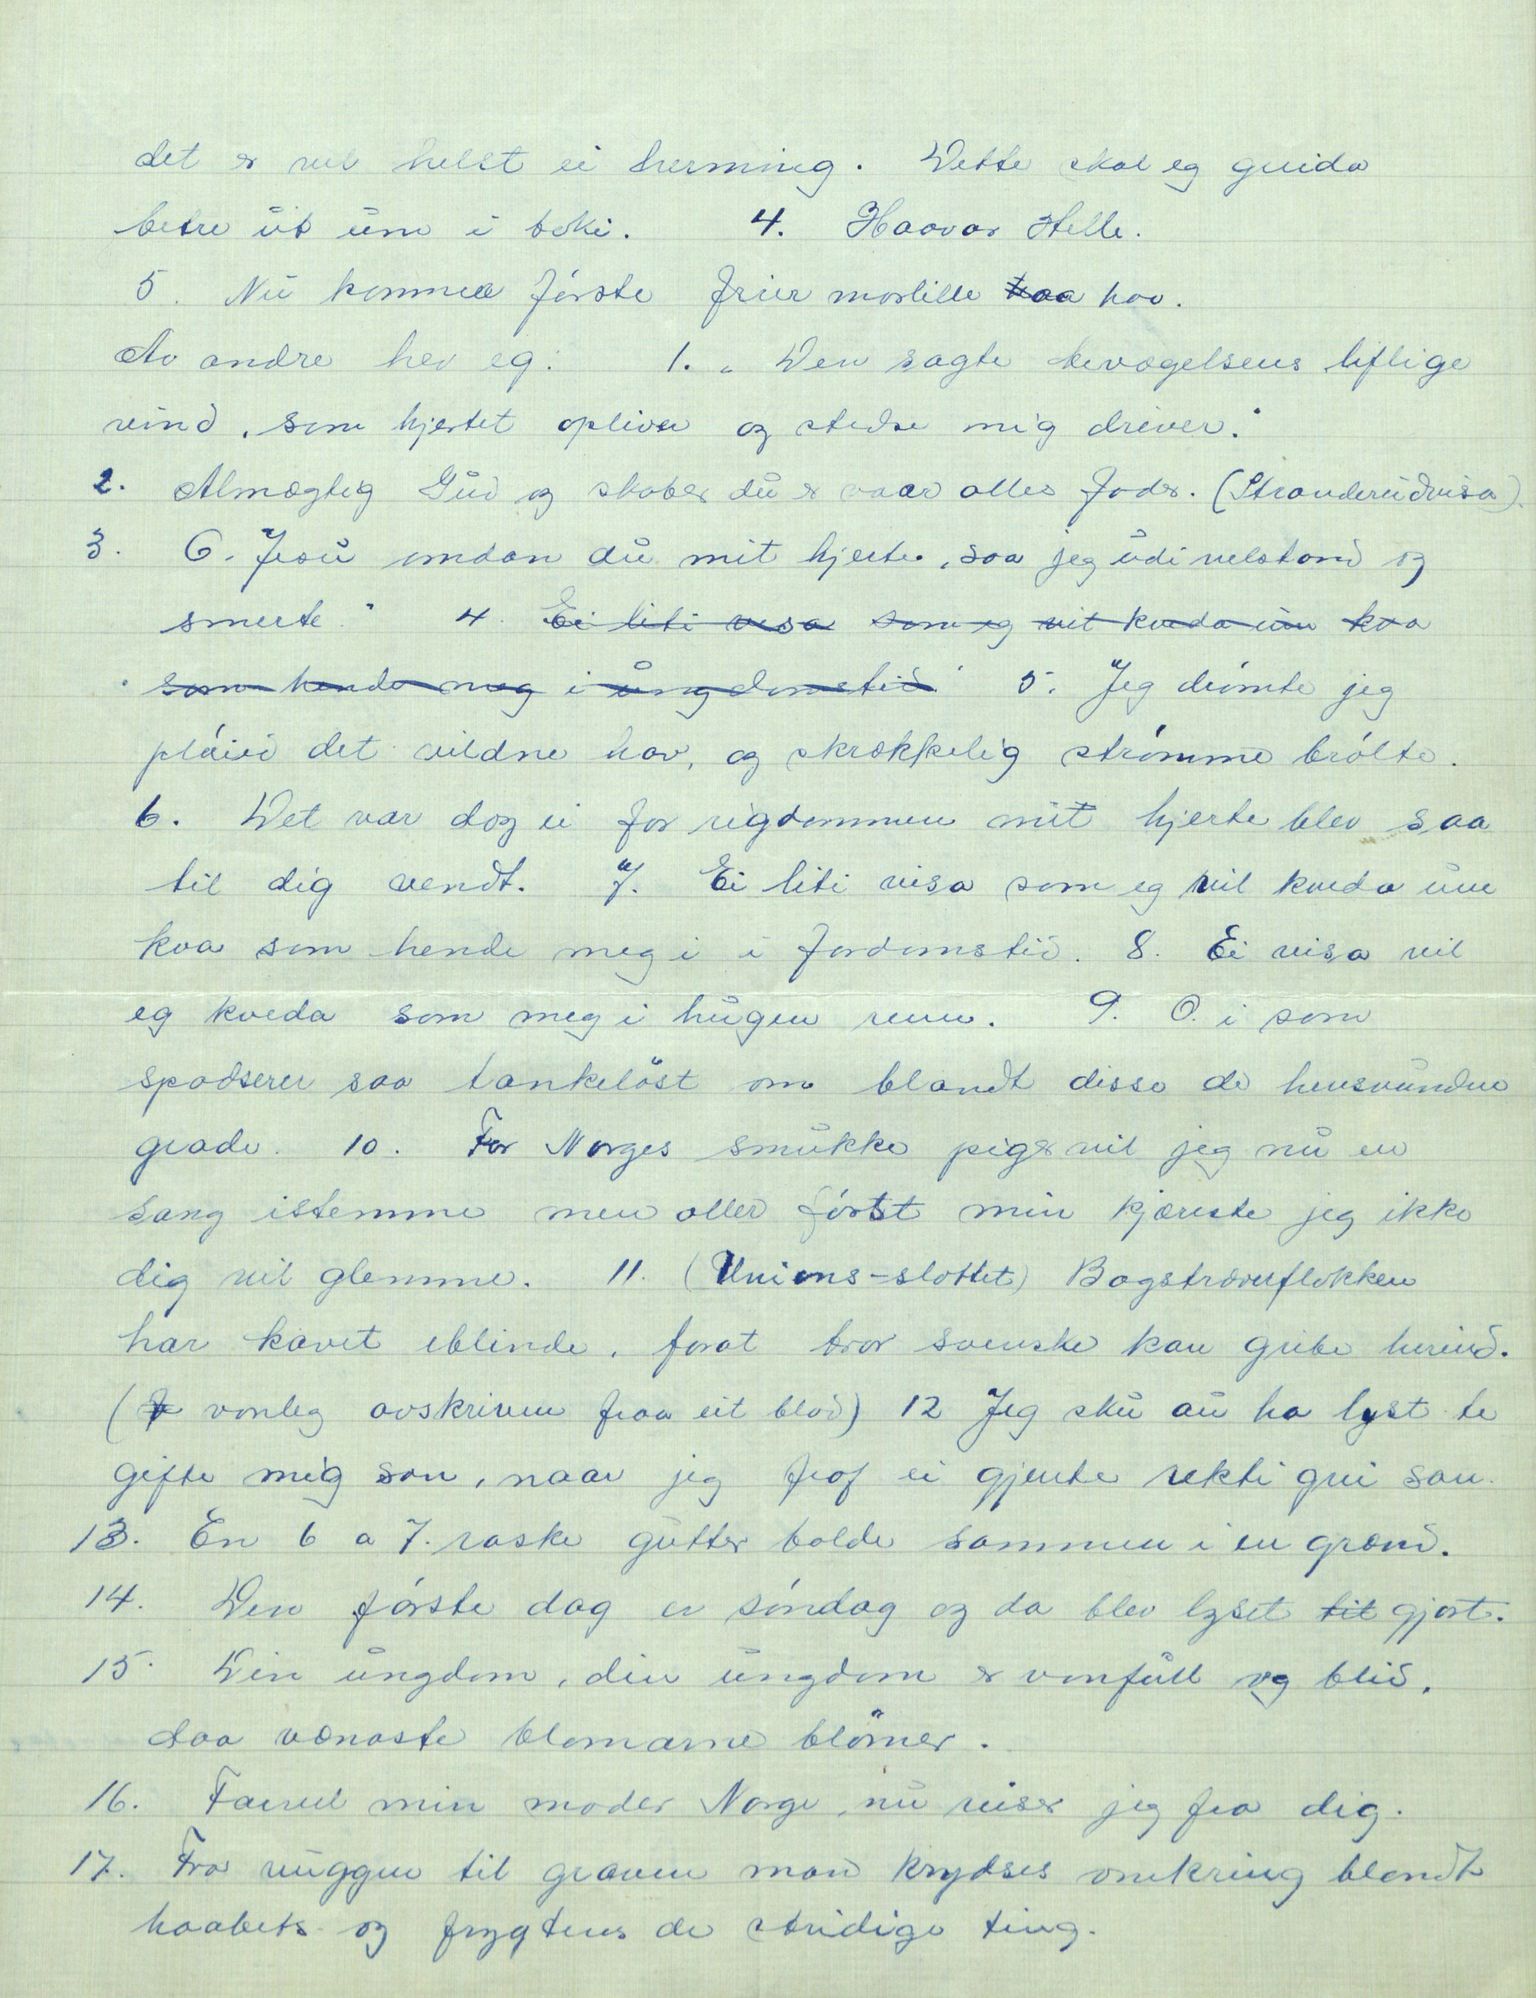 det er vel helst ei herming. Dette skal eg greida
betre ut um i boki. 4. Haavar Helle.
5. Nu kommer förste frier morlille haa hoo.
Av andre hev eg: 1. „ Den sagte bevægelsens liflige
vind, som hjertet opliver og stedse mig driver."
2. Almægtig Gud og skaber du er vaar alles fader. (Stranderudvisa).
3. O. Jesu omdan du mit hjerte, saa jeg udi velstand og
smerte." 4. Ei liti visa som eg vil kveda um kva
som hende meg i ungdomstid 5. "Jeg drömte jeg
plöiei det vildne hav, og skrækkelig strömme brölte.
6. Det var dog ei for rigdommen mit hjerte blev saa
til dig vendt. 7. "Ei liti visa som eg vil kveda um
kva som hende meg i i fordomstid. 8. Ei visa vil
eg kveda som meg i hugen renn. 9. O. i som
spadserer saa tankelöst om blandt disse de hensvundne
grade. 10. For Norges smukke piger vil jeg nu en
sang istemme men aller först min kjæreste jeg ikke
dig vil glemme. 11. (Unions-slottet) Bagstræverflokken
har kavet iblinde, forat bror svenske kan gribe herind.
( vonleg avskriven fraa eit blad) 12 Jeg sku au ha lyst te
gifte mig san, naar jeg traf ei gjente rekti grei san.
13. En 6 a 7. raske gutter bolde sammen i en grænd.
14. Den förste dag er söndag og da blev lyset til gjort.
15. Din ungdom, din ungdom er vonfull og blid,
daa vænaste blomarne blömer.
16. Farvel min moder Norge, nu reiser jeg fra dig.
17. Fra vuggen til graven man krydses omkring blandt
haabets og frygtens de stridige ting.